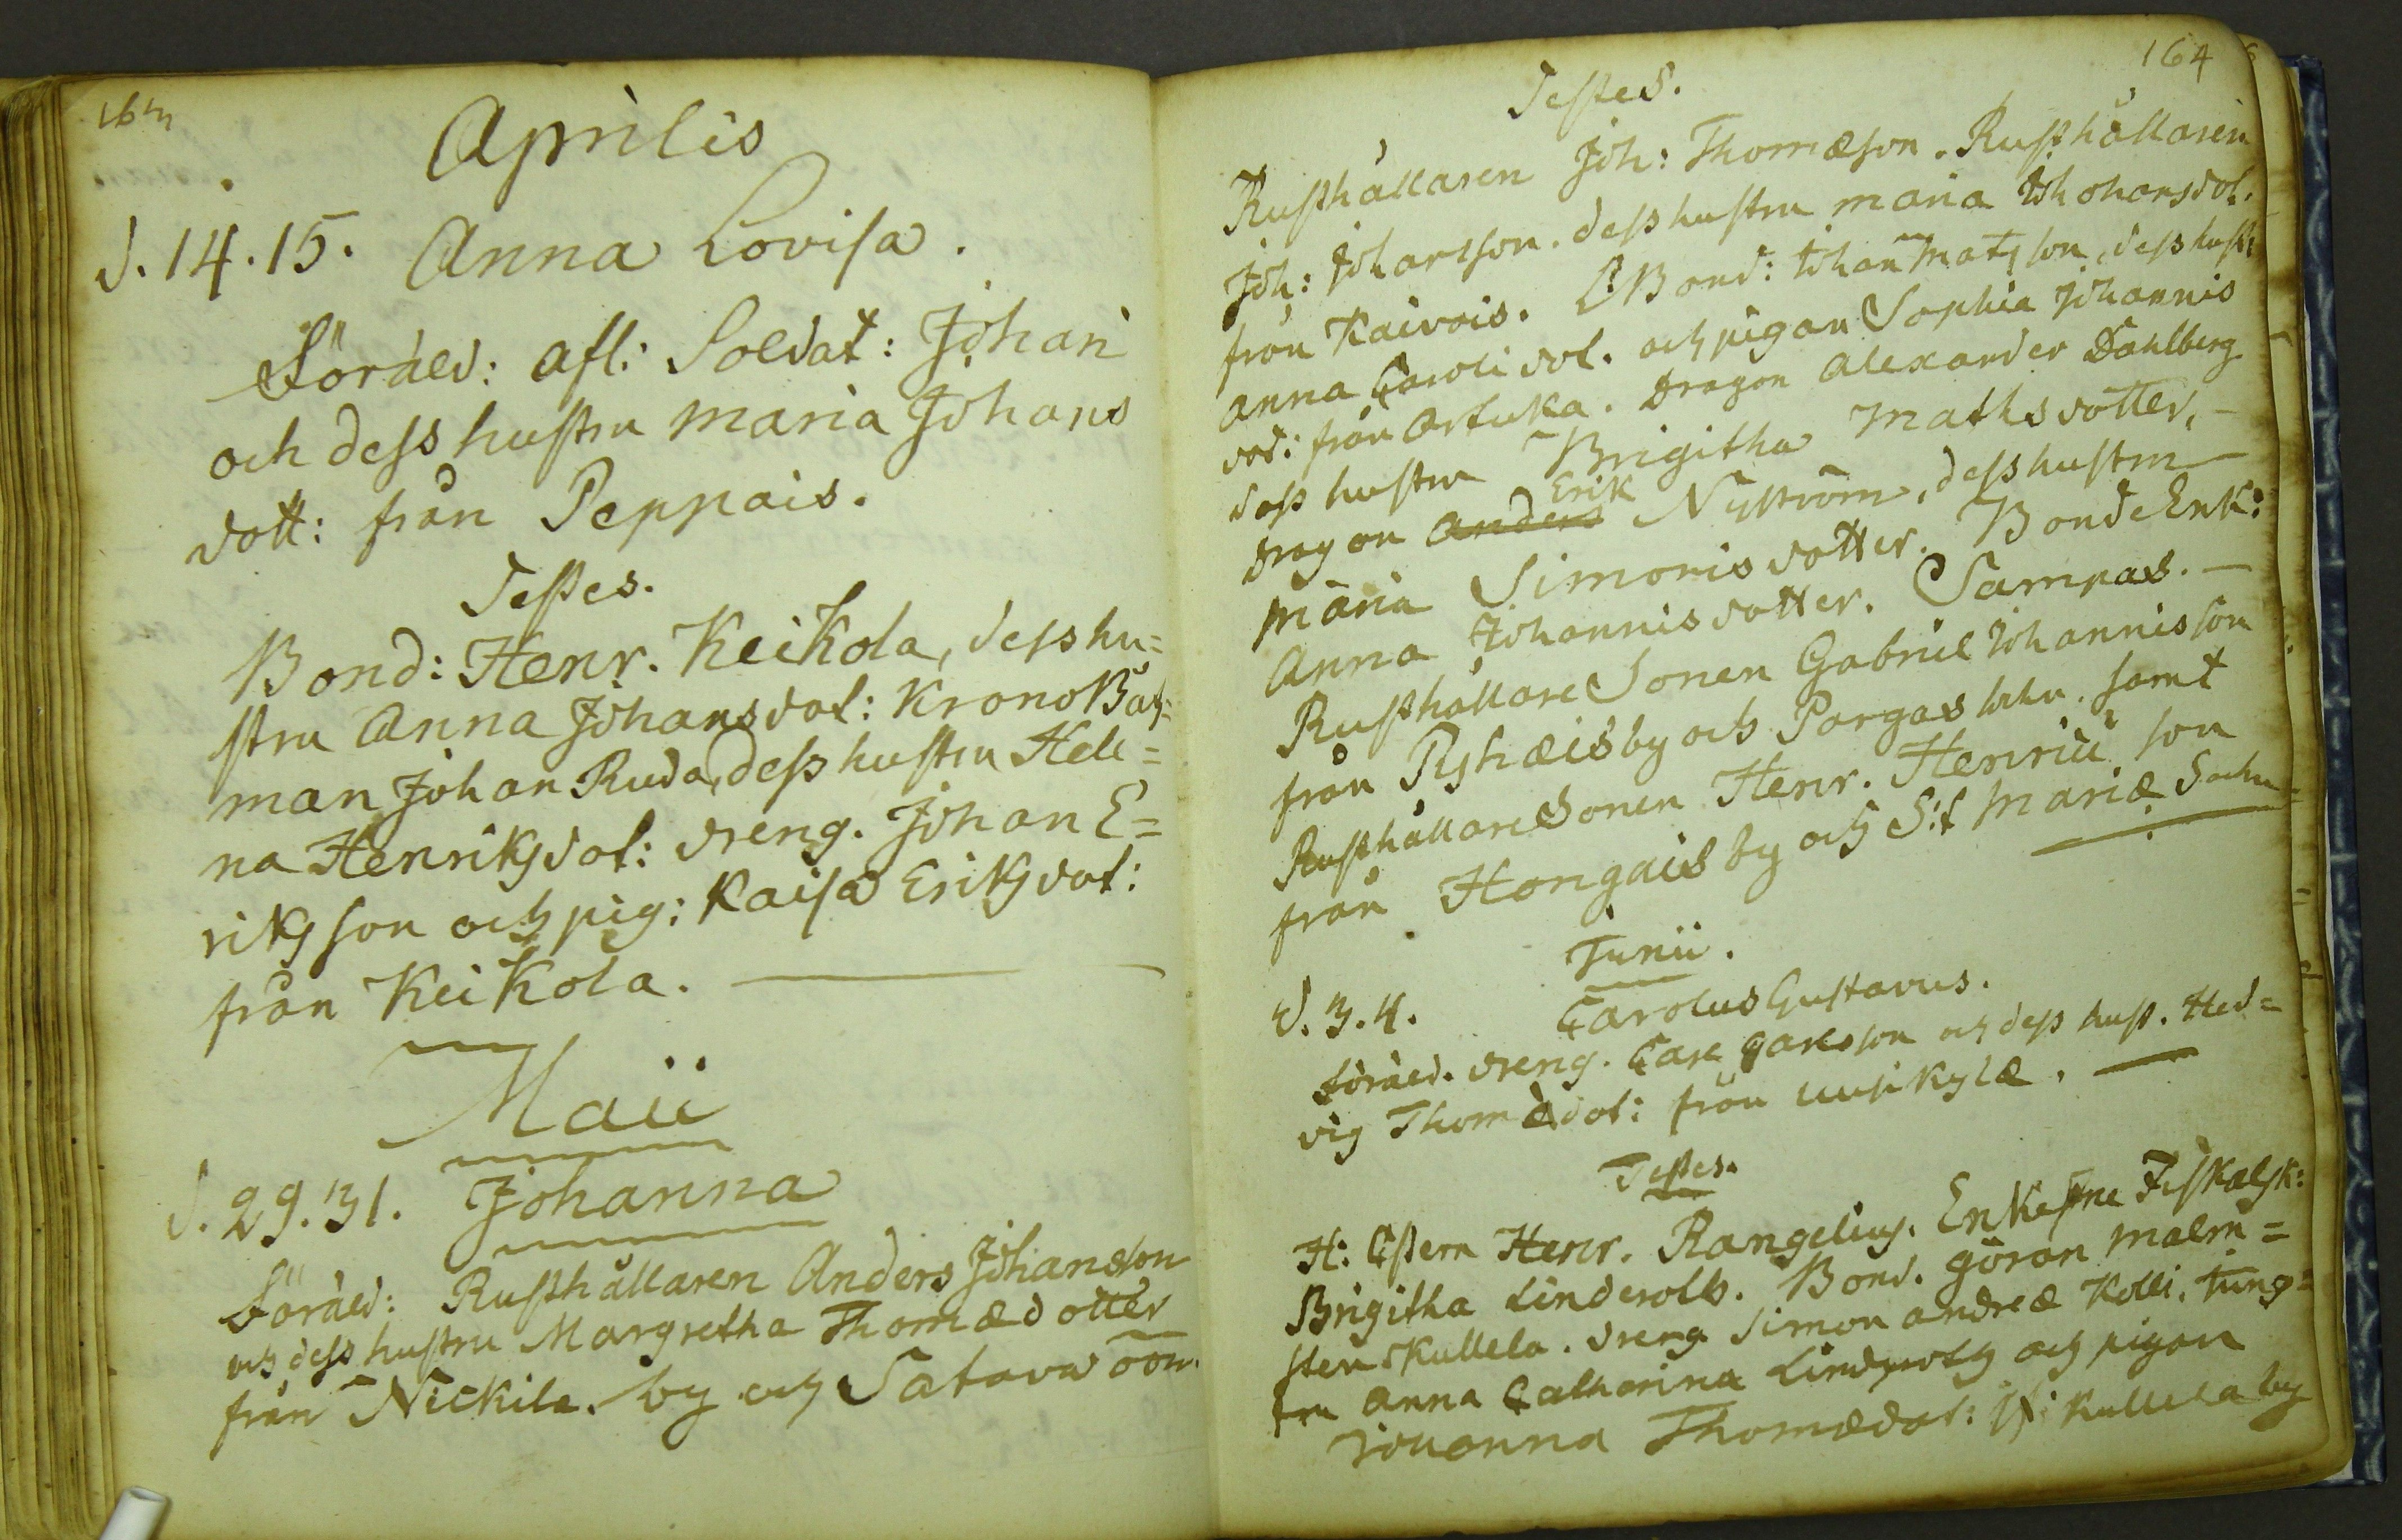 163
Aprilis
d. 14. 15. Anna Lovisa.
Föräld: afl: Soldat: Johan
och dess hustru Maria Johans
dott: från Peppois.
Testes.
Bond: Henr. Keikola, dess hu=
stru Anna Johansdot: Krono Båtz=
man Johan Ruda, dess hustru Hele=
na Henriksdot: dreng. Johan E=
riksson och pig: Kaisa Eriksdot:
från Keikola.
Maii
d. 29. 31. Johanna
Föräld: Rusthållaren Anders Johansson
och dess hustru Margretha Thomædotter
från Nickila by och Satava öön.
164
Testes.
Rusthållaren Joh: Thomæson. Rusthållaren
Joh: Johansson. dess hustru Maria Johansdot.
från Kaivois. Bond: Johan Matsson, dess hust:
Anna Carolidot. och pigan Sophia Johannis
dod: från Artuka. Dragon Alexander Dahlberg
dess hustru Brigitha Mathsdotter,
Erik
Dragon Anders Nyström, dess hustru
Maria Simonisdotter. Bonde Enk:
Anna Johannisdotter. Sampas.
Rusthållare Sonen Gabriel Johannisson
från Pyhæis by och Pargas sokn. samt
Rusthållare Sonen Henr. Henrici son
från Hongais by och S:t Mariæ Sockn
Junii.
d. 3. 4. Carolus Gustavus.
Föräld. dreng. Carl Carlsson och dess hust. Hed=
vig Thomædot: från Uusikylæ.
Testes.
H: Henr. Rangelius. Enkefrue Fiskalsk:
Brigitha Linderoth. Bond. Göran Malm=
sten Kullela. dreng Simon Andreæ Kolli, Jung=
fru Anna Catharina och pigan
Johanna Thomædot: Kullela by